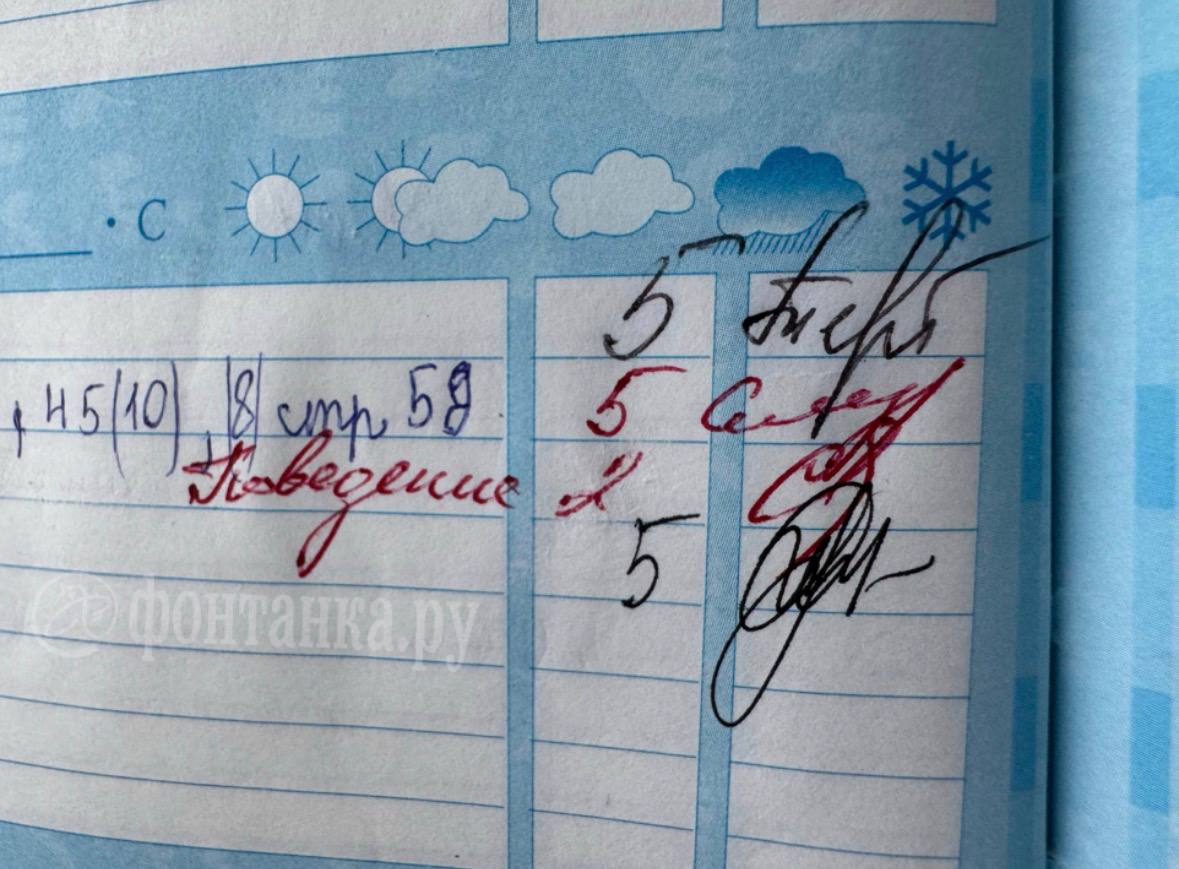 ° C
5
, 45(10), 18 стр. 58 5
Поведение 2
5
фонтанка.ру